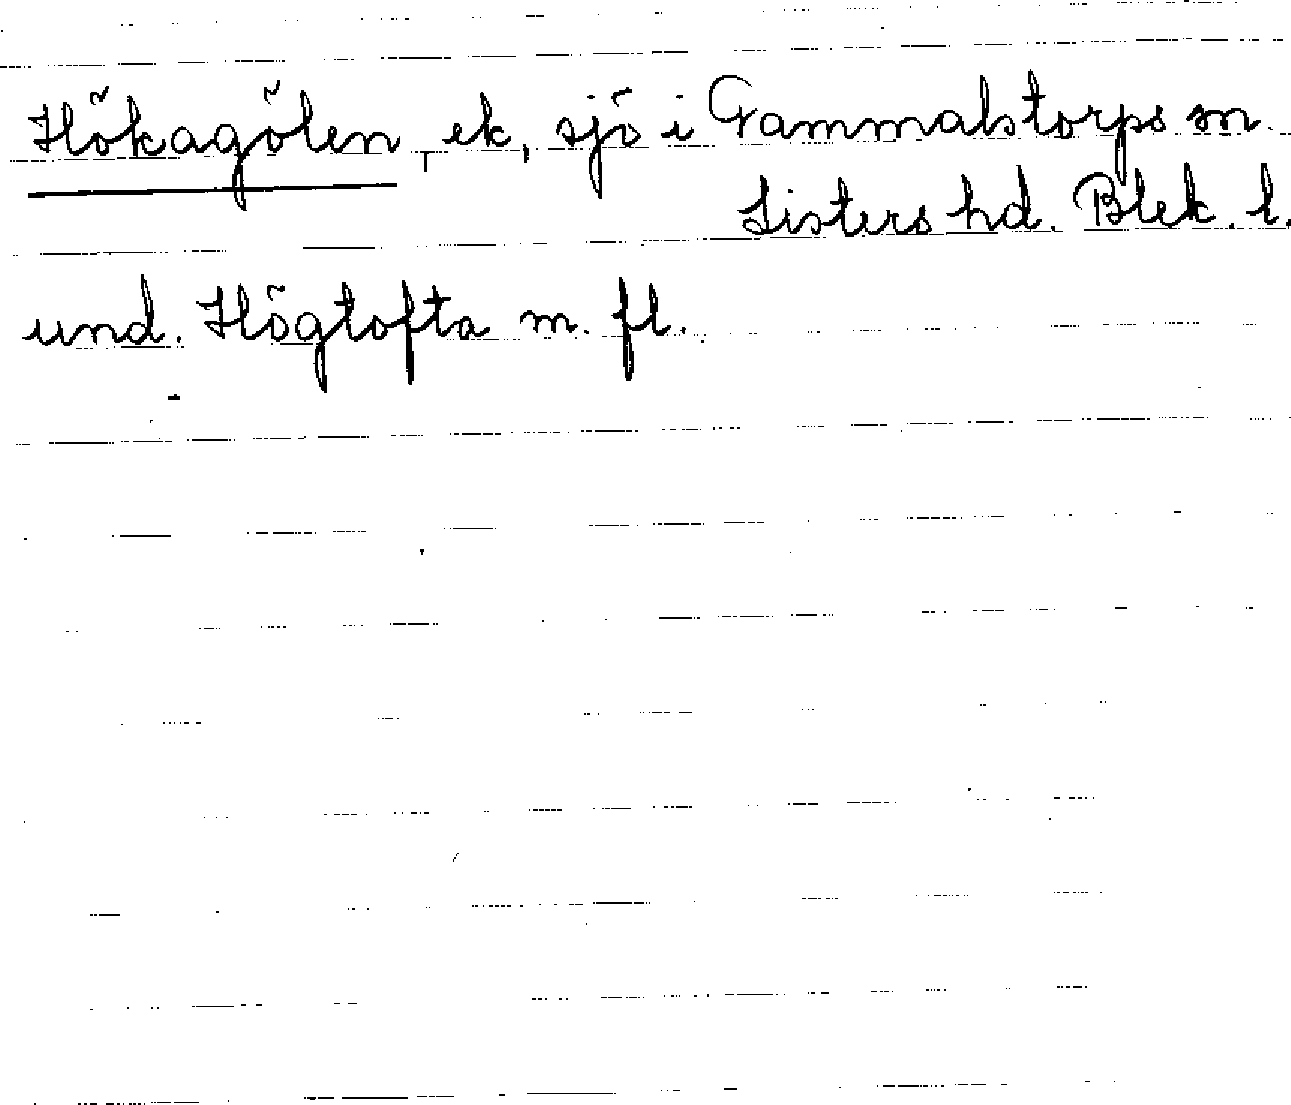 Hökagölen, ek, sjö i Gammalstorps sn.
Listers hd. Blek. l.
und. Högtofta m. fl.